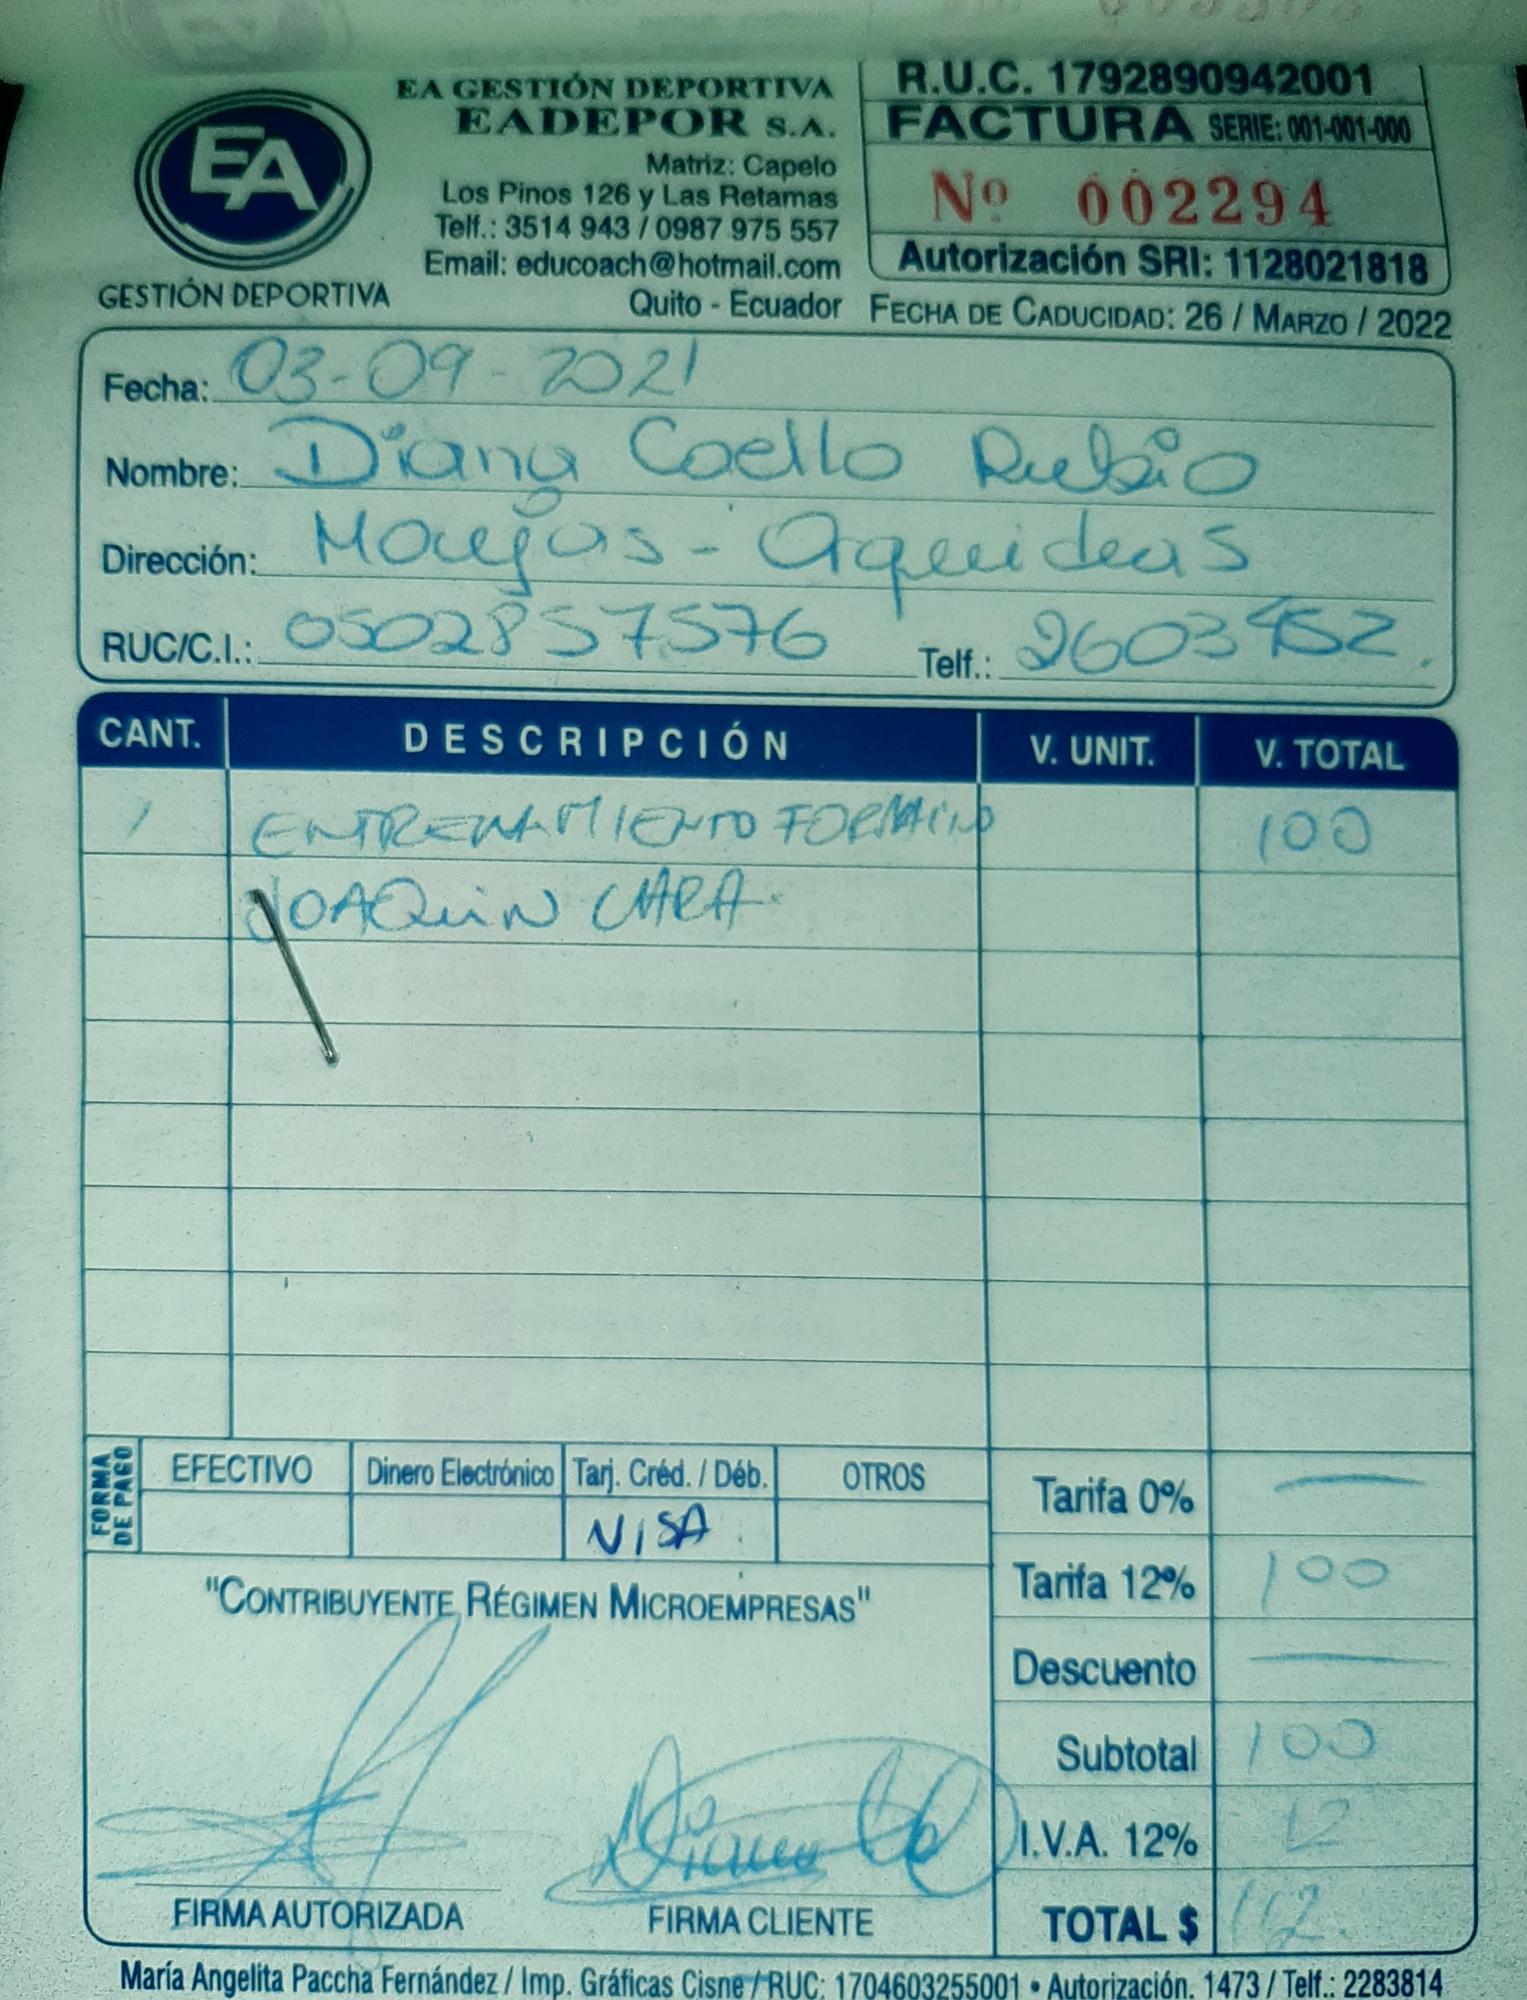 EA GESTIÓN DEPORTIVA
EADEPOR S.A.
EA
GESTIÓN DEPORTIVA
Matriz: Capelo
Los Pinos 126 y Las Retamas
Telf.: 3514 943 / 0987 975 557
Email: educoach@hotmail.com
Quito - Ecuador
R.U.C. 1792890942001
FACTURA SERIE: 001-001-000
Nº 002294
Autorización SRI: 1128021818
FECHA DE CADUCIDAD: 26 / MARZO / 2022
Fecha: 03-09-2021
Nombre: Diana Coello Rubio
Dirección:
RUC/C.I.: 0502857576 Telf.: 2603452.
CANT. DESCRIPCIÓN V. UNIT. V. TOTAL
1 ENTRENAMIENTO 100
JOAQUIN
FORMA DE PAGO
EFECTIVO Dinero Electrónico Tarj. Créd. / Déb. OTROS
VISA
Tarifa 0% —
Tarifa 12% 100
Descuento —
Subtotal 100
I.V.A. 12% 12
TOTAL $ 112.
"CONTRIBUYENTE RÉGIMEN MICROEMPRESAS"
FIRMA AUTORIZADA FIRMA CLIENTE
María Angelita Paccha Fernández / Imp. Gráficas Cisne / RUC: 1704603255001 • Autorización. 1473 / Telf.: 2283814